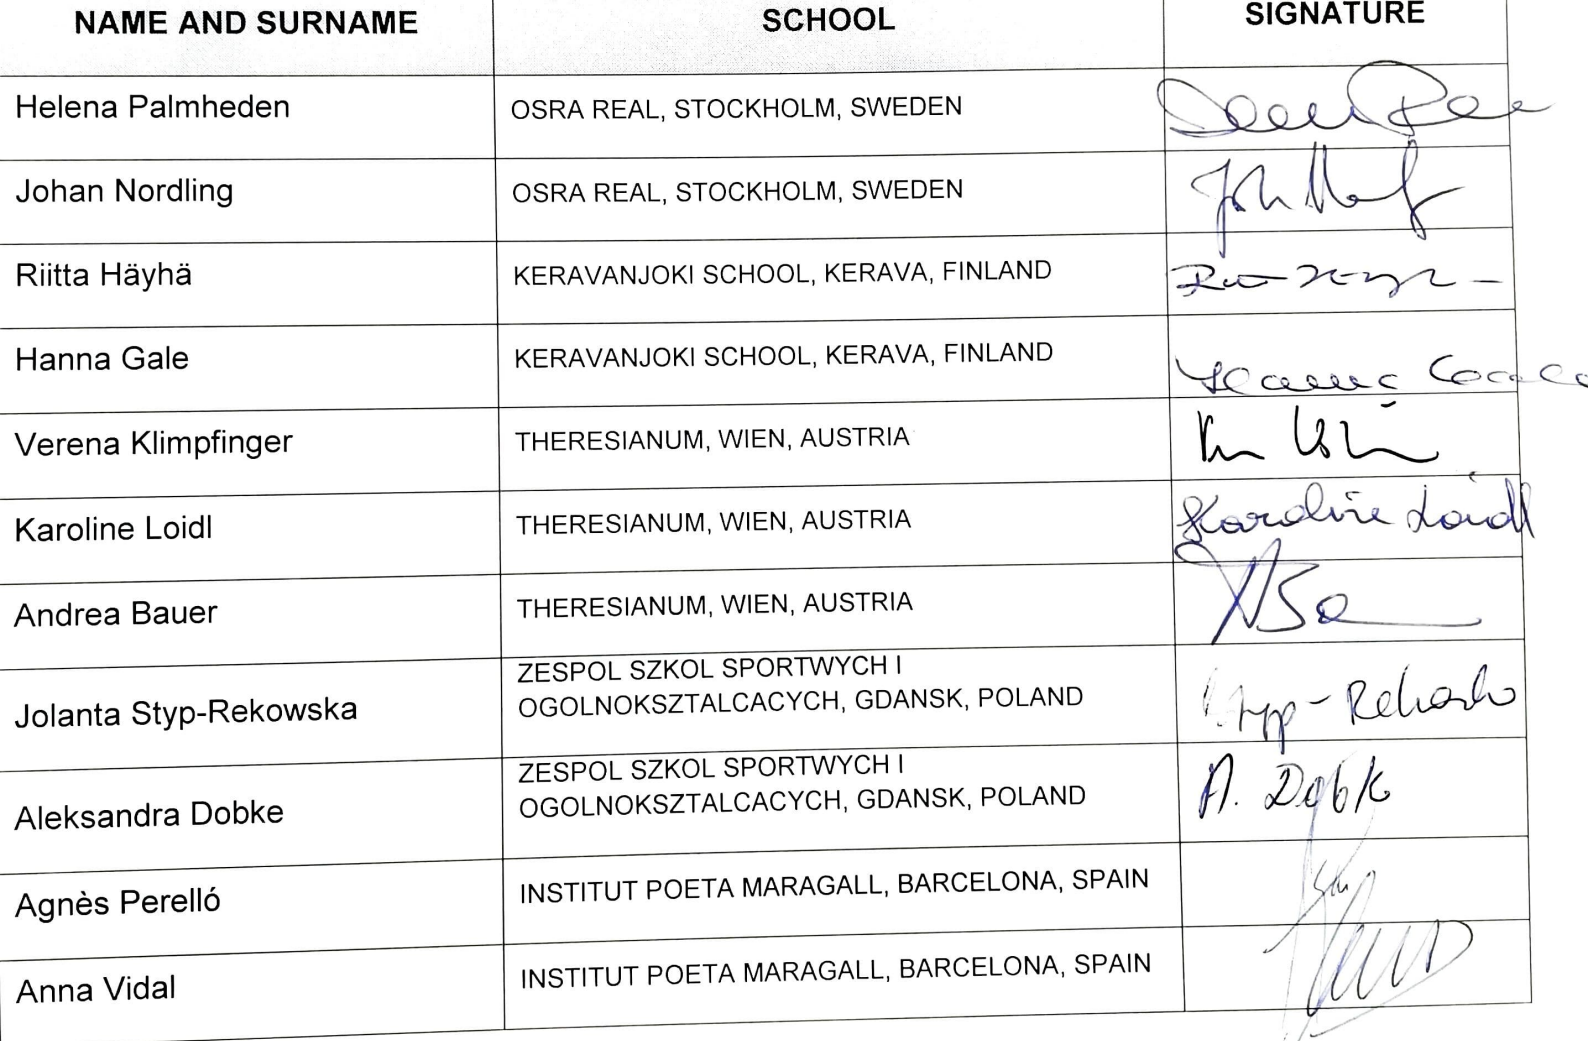 NAME AND SURNAME SCHOOL SIGNATURE
Helena Palmheden OSRA REAL, STOCKHOLM, SWEDEN
Johan Nordling OSRA REAL, STOCKHOLM, SWEDEN
Riitta Häyhä KERAVANJOKI SCHOOL, KERAVA, FINLAND
Hanna Gale KERAVANJOKI SCHOOL, KERAVA, FINLAND
Verena Klimpfinger THERESIANUM, WIEN, AUSTRIA
Karoline Loidl THERESIANUM, WIEN, AUSTRIA Karoline Loidl
Andrea Bauer THERESIANUM, WIEN, AUSTRIA
ZESPOL SZKOL SPORTWYCH I
Jolanta Styp-Rekowska OGOLNOKSZTALCACYCH, GDANSK, POLAND
ZESPOL SZKOL SPORTWYCH I
Aleksandra Dobke OGOLNOKSZTALCACYCH, GDANSK, POLAND A. Dobk
Agnès Perelló INSTITUT POETA MARAGALL, BARCELONA, SPAIN
Anna Vidal INSTITUT POETA MARAGALL, BARCELONA, SPAIN